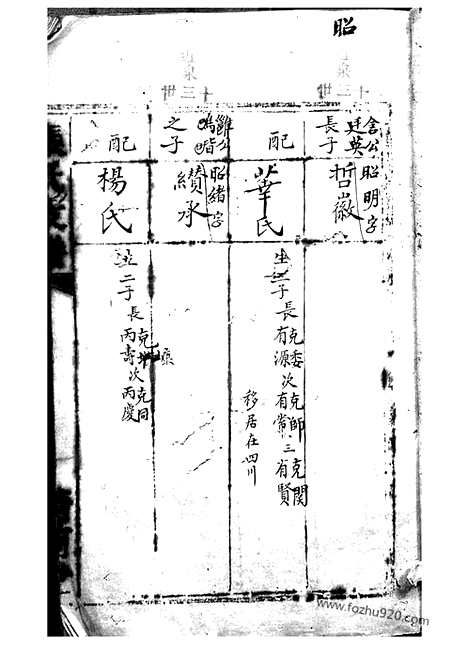 昭
十三世
含公廷英長子
昭明字
哲徽
配
華氏
生三子長克委有源次克師有常三克闗有賢
移居在四川
十三世
之子
昭緒字
纘承
配
楊氏
生二子長克 丙壽次克同丙慶
www.fozhu920.com